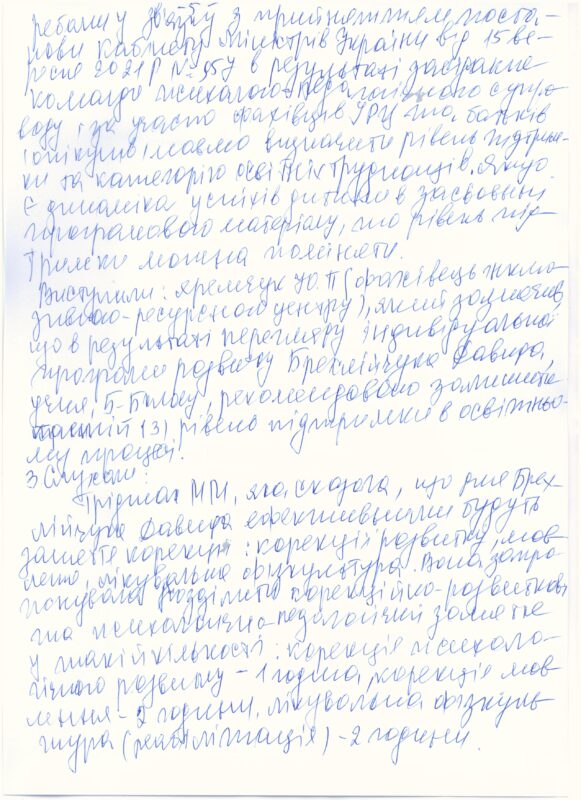 ребалку зв'язку з прийняттям поста-
нови Кабінету Міністрів України від 15 ве-
ресня 2021 Р № 957 в результаті засідання
команди психолого-педагогічного супро
воду і за участю фахівців ІРЦ та батьків
(опікунів) маємо визначити рівень підтрим-
ки та категорію освітніх труднощів. Якщо
є динаміка успіхів дитини в засвоєнні
програмового матеріалу, то рівень під-
тримки можна поміняти.
Виступили: Яремчук Ю. П (фахівець інклю-
зивно-ресурсного центру), який зазначив
що в результаті перегляду індивідуальної
програми розвитку Брехлійчука Давида,
учня, 6-Б класу, рекомендовано залишити
третій (3) рівень підтримки в освітньо-
му процесі.
3 Слухали:
Трідмах М М, яка сказала, що для Брех-
лійчука Давида ефективними будуть
заняття корекція: корекція розвитку, мов-
лення, лікувальна фізкультура. Вона запро-
понувала розділити корекційно-розвиткові
та психолого-педагогічні заняття
у такій кількості: корекція психоло-
гічного розвитку - 1 година, корекція мов-
лення - 2 години, лікувальна фізкуль-
тура (реабілітація) - 2 години.